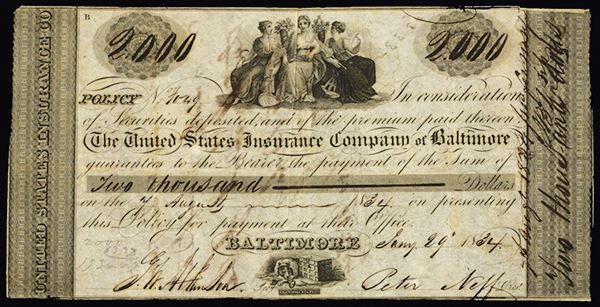 B
2.000 2.000
UNITED STATES INSURANCE CO
POLICY No. In consideration
of Securities deposited, and of the premium paid thereon
The United States Insurance Company of Baltimore
guarantees to the Bearer, the payment of the Sum of
Two thousand Dollars
on the 7 August 1834 on presenting
this Policy for payment at their Office.
BALTIMORE Jany 29th 1834
Peter Neff
Two thousand